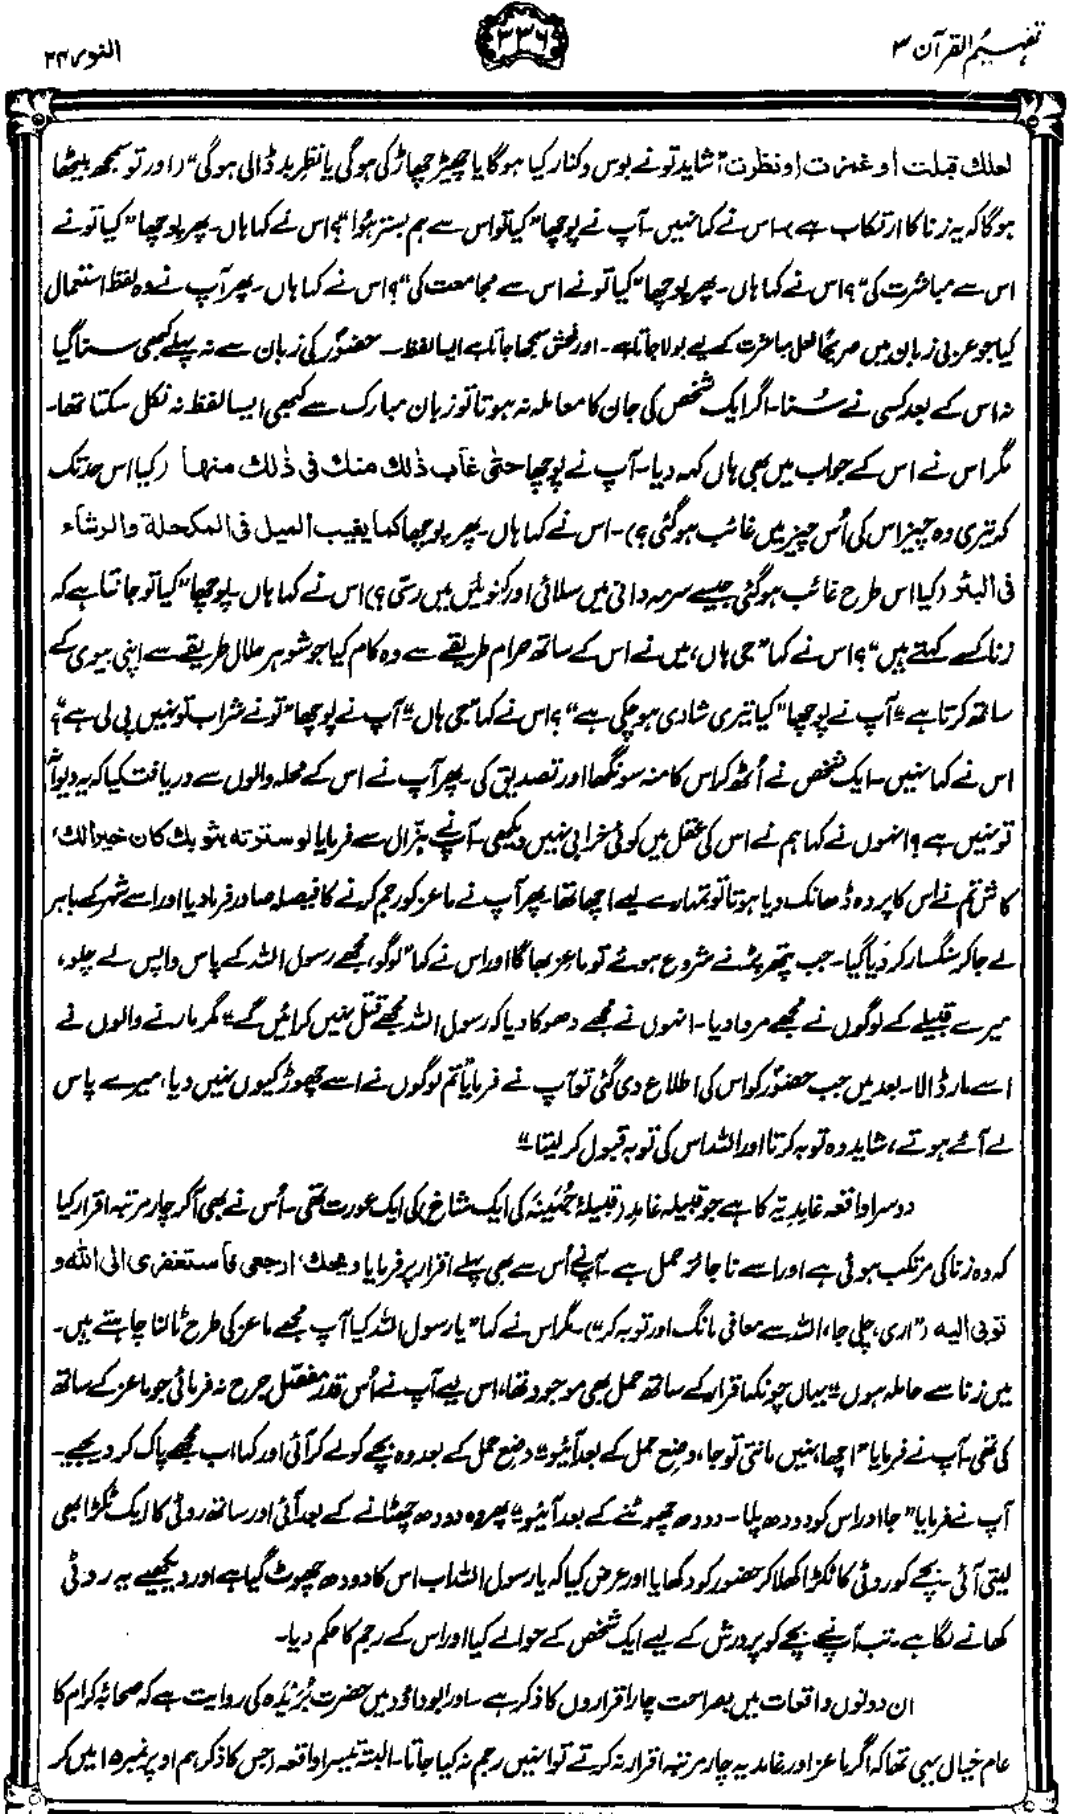 تفہیم القرآن ۳
۳۳۶
النور ۲۴
لعلك قبلت او غمزت او نظرت "شاید تو نے بوس و کنار کیا ہوگا یا چھیڑ چھاڑ کی ہوگی یا نظرِ بد ڈالی ہوگی" (اور تو سمجھ بیٹھا
ہوگا کہ یہ زنا کا ارتکاب ہے)۔ اس نے کہا نہیں۔ آپ نے پوچھا "کیا تو اس سے ہم بستر ہُوا"؟ اس نے کہا ہاں۔ پھر پوچھا "کیا تو نے
اس سے مباشرت کی"؟ اس نے کہا ہاں۔ پھر پوچھا "کیا تو نے اس سے مجامعت کی"؟ اس نے کہا ہاں۔ پھر آپ نے وہ لفظ استعمال
کیا جو عربی زبان میں صریحًا فعلِ مباشرت کے لیے بولا جاتا ہے۔ اور فحش سمجھا جاتا ہے ایسا لفظ۔ حضورؐ کی زبان سے نہ پہلے کبھی سنا گیا
نہ اس کے بعد کسی نے سُنا۔ اگر ایک شخص کی جان کا معاملہ نہ ہوتا تو زبان مبارک سے کبھی ایسا لفظ نہ نکل سکتا تھا۔
مگر اس نے اس کے جواب میں بھی ہاں کہہ دیا۔ آپ نے پوچھا حتٰی غاب ذٰلك منك فی ذٰلك منها (کیا اس حد تک
کہ تیری وہ چیز اس کی اُس چیز میں غائب ہوگئی؟)۔ اس نے کہا ہاں۔ پھر پوچھا کما یغیب المیل فی المکحلة والرشاء
فی البئر (کیا اس طرح غائب ہوگئی جیسے سرمہ دانی میں سلائی اور کنوئیں میں رسّی؟) اس نے کہا ہاں۔ پوچھا "کیا تو جانتا ہے کہ
زنا کسے کہتے ہیں"؟ اس نے کہا "جی ہاں، میں نے اس کے ساتھ حرام طریقے سے وہ کام کیا جو شوہر حلال طریقے سے اپنی بیوی کے
ساتھ کرتا ہے"۔ آپ نے پوچھا "کیا تیری شادی ہوچکی ہے"؟ اس نے کہا "جی ہاں"۔ آپ نے پوچھا "تو نے شراب تو نہیں پی لی ہے"؟
اس نے کہا نہیں۔ ایک شخص نے اُٹھ کر اس کا منہ سونگھا اور تصدیق کی۔ پھر آپ نے اس کے محلہ والوں سے دریافت کیا کہ یہ دیوانہ
تو نہیں ہے؟ انہوں نے کہا ہم نے اس کی عقل میں کوئی خرابی نہیں دیکھی۔ آپ نے ہزّال سے فرمایا لو سترته بثوبك كان خيرا لك،
کاش تم نے اس کا پردہ ڈھانک دیا ہوتا تو تمہارے لیے اچھا تھا۔ پھر آپ نے ماعز کو رجم کرنے کا فیصلہ صادر فرما دیا اور اسے شہر کے باہر
لے جا کر سنگسار کر دیا گیا۔ جب پتھر پڑنے شروع ہوئے تو ماعز بھاگا اور اس نے کہا "لوگو، مجھے رسول اللہ کے پاس واپس لے چلو،
میرے قبیلے کے لوگوں نے مجھے مروا دیا۔ انہوں نے مجھے دھوکا دیا کہ رسول اللہ مجھے قتل نہیں کرائیں گے"۔ مگر مارنے والوں نے
اسے مار ڈالا۔ بعد میں جب حضورؐ کو اس کی اطلاع دی گئی تو آپ نے فرمایا "تم لوگوں نے اسے چھوڑ کیوں نہیں دیا، میرے پاس
لے آئے ہوتے، شاید وہ توبہ کرتا اور اللہ اس کی توبہ قبول کر لیتا"۔
دوسرا واقعہ غامدیہ کا ہے جو قبیلہ غامد (قبیلۂ جُہَینَہ کی ایک شاخ) کی ایک عورت تھی۔ اُس نے بھی آکر چار مرتبہ اقرار کیا
کہ وہ زنا کی مرتکب ہوئی ہے اور اسے ناجائز حمل ہے۔ آپ نے اُس سے بھی پہلے اقرار پر فرمایا ویحك، ارجعی فاستغفری الی اللہ و
توبی الیه ("اری، چلی جا، اللہ سے معافی مانگ اور توبہ کر")۔ مگر اس نے کہا "یا رسول اللہ کیا آپ مجھے ماعز کی طرح ٹالنا چاہتے ہیں۔
میں زنا سے حاملہ ہوں"۔ یہاں چونکہ اقرار کے ساتھ حمل بھی موجود تھا، اس لیے آپ نے اُس قدر مفصّل جرح نہ فرمائی جو ماعز کے ساتھ
کی تھی۔ آپ نے فرمایا "اچھا، نہیں مانتی تو جا، وضعِ حمل کے بعد آئیو"۔ وضعِ حمل کے بعد وہ بچے کو لے کر آئی اور کہا اب مجھے پاک کر دیجیے۔
آپ نے فرمایا "جا اور اس کو دودھ پلا۔ دودھ چھوٹنے کے بعد آئیو"۔ پھر وہ دودھ چھٹانے کے بعد آئی اور ساتھ روٹی کا ایک ٹکڑا بھی
لیتی آئی۔ بچے کو روٹی کا ٹکڑا کھلا کر حضور کو دکھایا اور عرض کیا کہ یا رسول اللہ اب اس کا دودھ چھوٹ گیا ہے اور دیکھیے یہ روٹی
کھانے لگا ہے۔ تب آپ نے بچے کو پرورش کے لیے ایک شخص کے حوالے کیا اور اس کے رجم کا حکم دیا۔
ان دونوں واقعات میں بصراحت چار اقراروں کا ذکر ہے۔ اور ابوداؤد میں حضرت بُرَیدَہ کی روایت ہے کہ صحابۂ کرام کا
عام خیال یہی تھا کہ اگر ماعز اور غامدیہ چار مرتبہ اقرار نہ کرتے تو انہیں رجم نہ کیا جاتا۔ البتہ تیسرا واقعہ (جس کا ذکر ہم اوپر نمبر ۱۵ میں کر